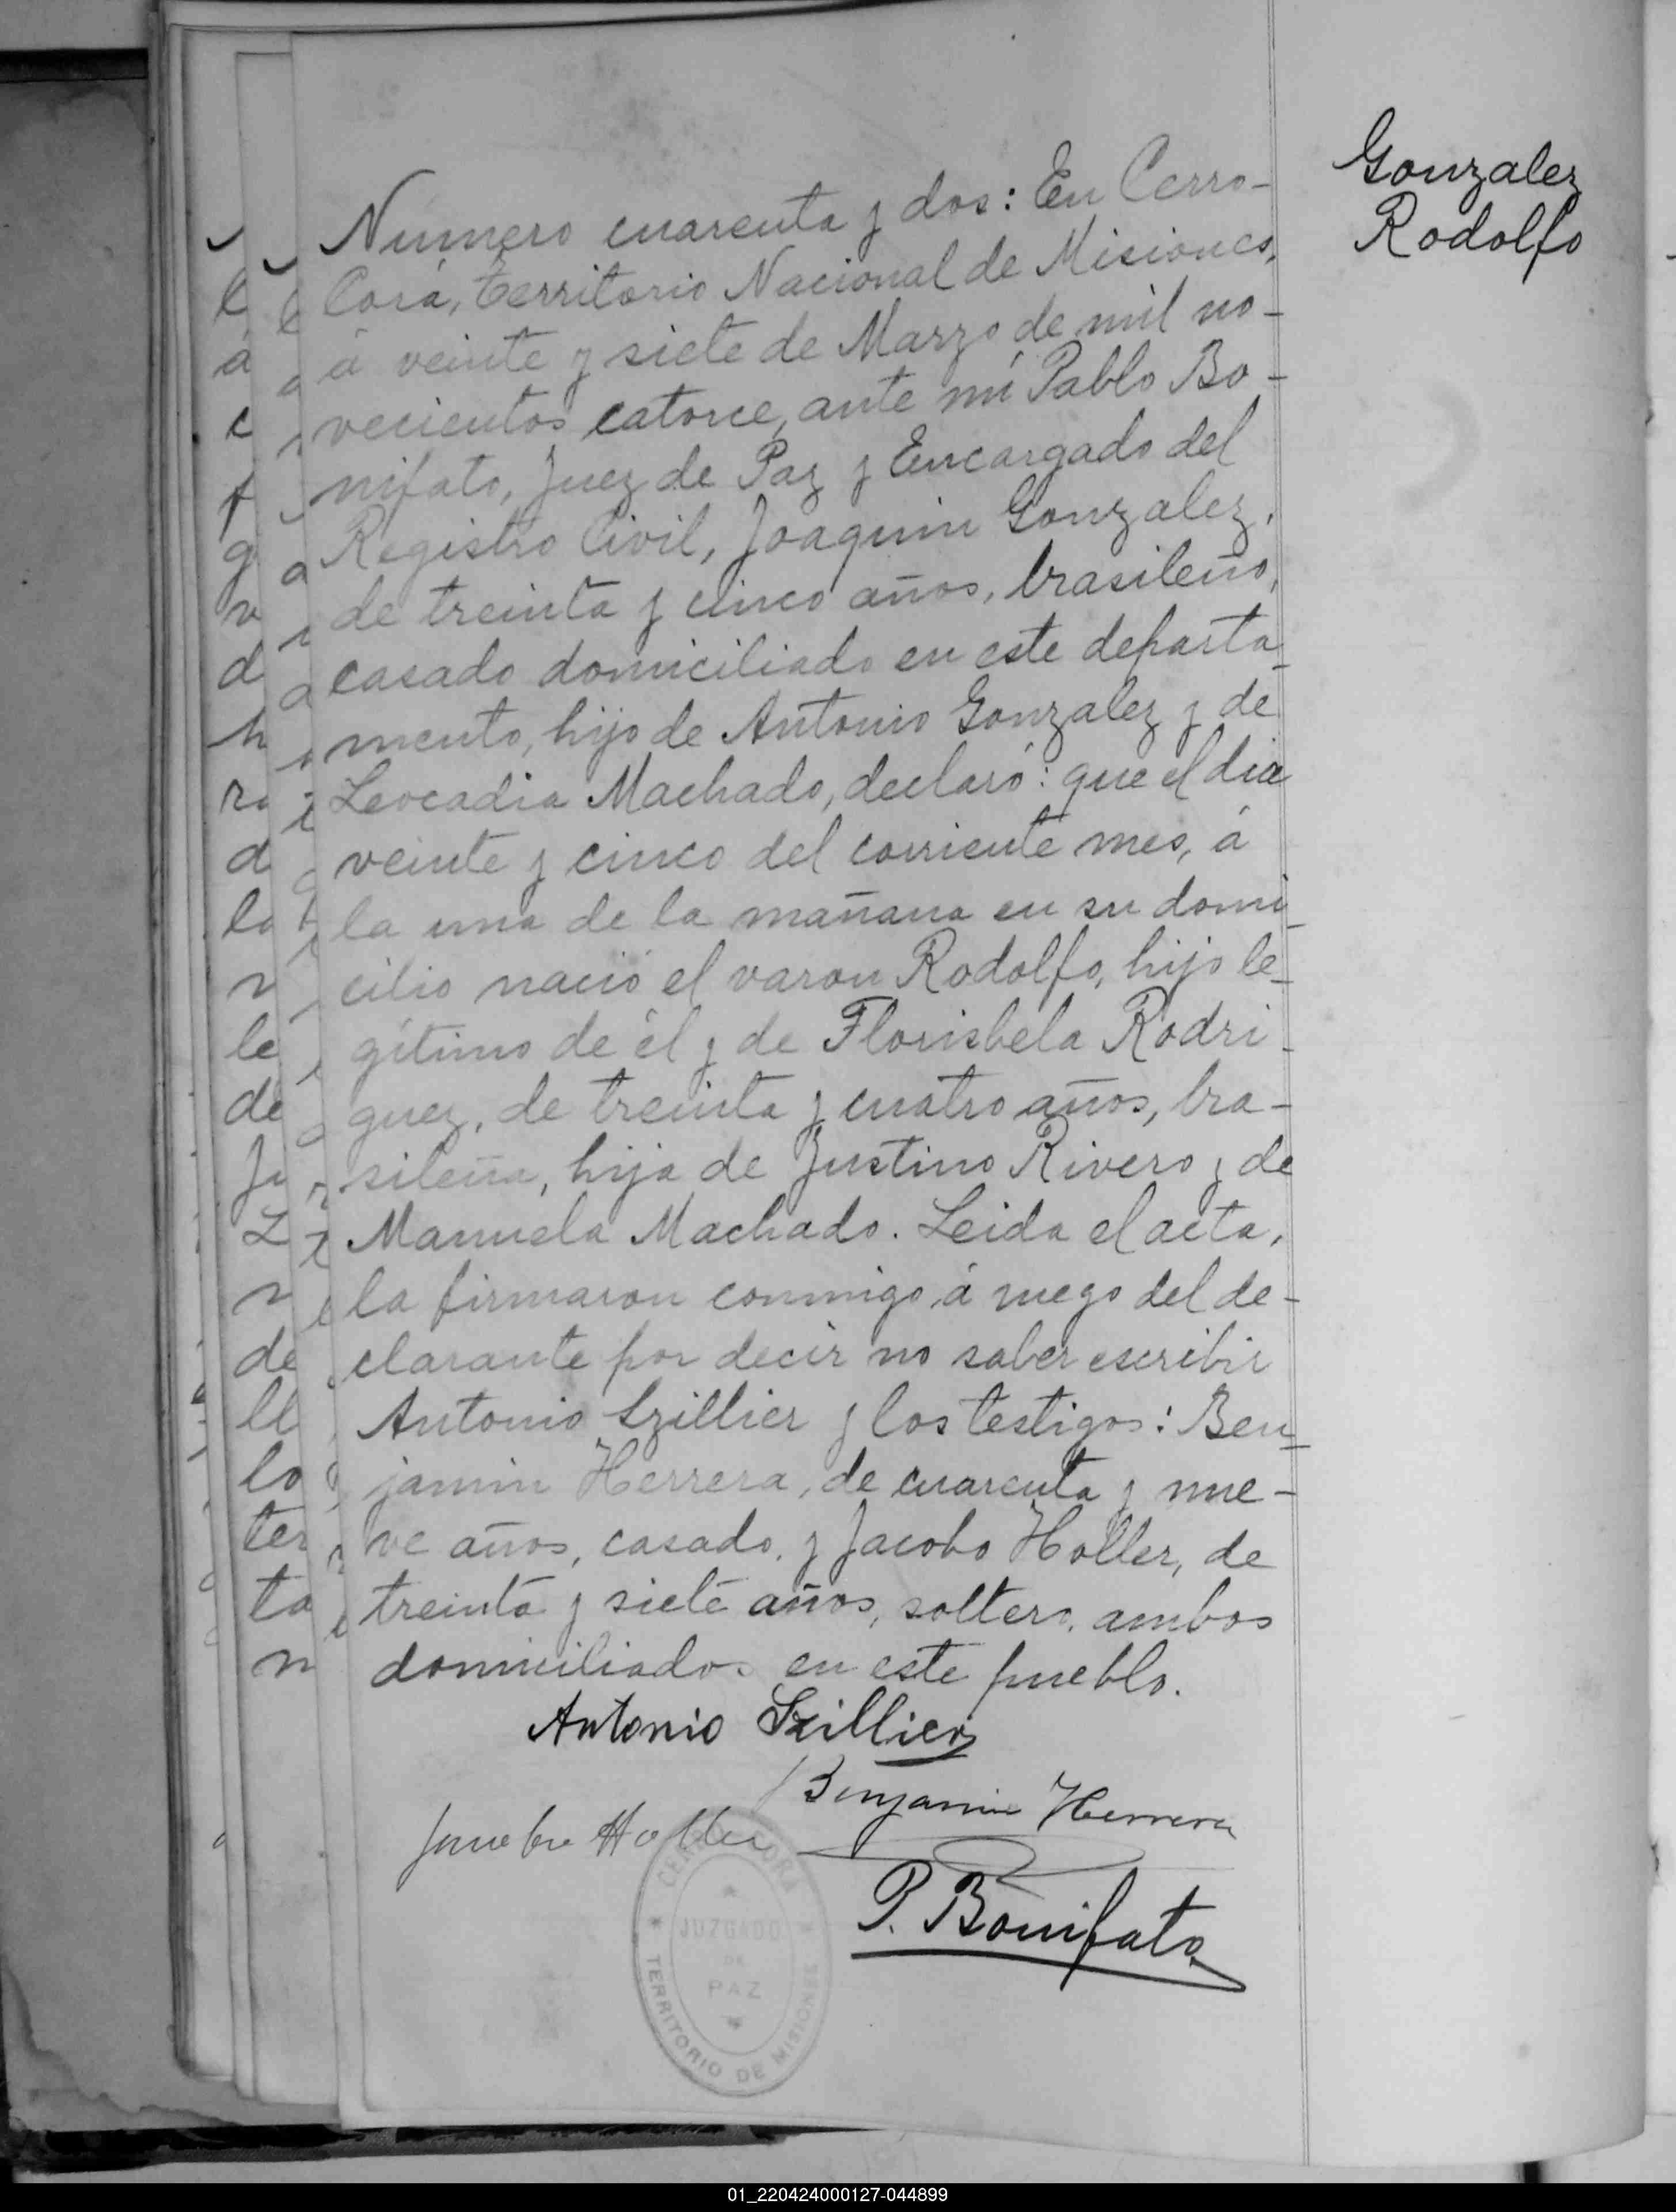 Gonzalez
Rodolfo
Número cuarenta y dos: En Cerro-
Corá, territorio Nacional de Misiones,
á veinte y siete de Marzo de mil no-
vecientos catorce, ante mí Pablo Bo-
nifato, Juez de Paz y Encargado del
Registro Civil, Joaquin Gonzalez,
de treinta y cinco años, brasileño,
casado domiciliado en este departa-
mento, hijo de Antonio Gonzalez y de
Leocadia Machado, declaró: que el dia
veinte y cinco del corriente mes, á
la una de la mañana en su domi-
cilio nació el varon Rodolfo, hijo le-
gítimo de él y de Florisbela Rodri-
guez, de treinta y cuatro años, bra-
sileña, hija de Justino Rivero y de
Manuela Machado. Leida el acta,
la firmaron conmigo, á ruego del de-
clarante por decir no saber escribir
Antonio Szillier y los testigos: Ben-
jamin Herrera, de cuarenta y nue-
ve años, casado, y Jacobo Holler, de
treinta y siete años, soltero, ambos
domiciliados en este pueblo.
Antonio Szillier
Benjamin Herrera
Jacobo Holler
P. Bonifato
CERRO CORA
JUZGADO
DE
PAZ
TERRITORIO DE MISIONES
01_220424000127-044899